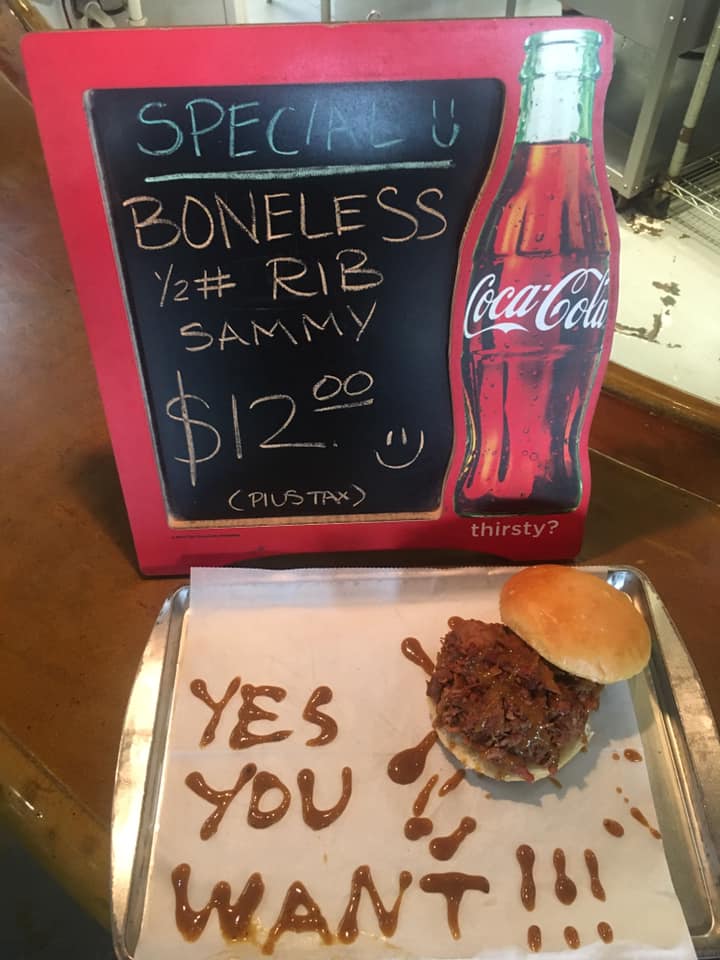 SPECIAL
BONELESS
1/2# RIB
SAMMY
$12.00
(PLUS TAX)
Coca-Cola
thirsty?
YES
YOU
WANT !!!